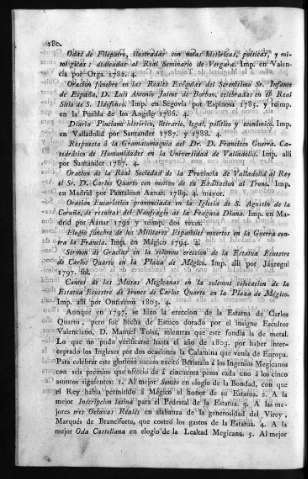 180.
Odas de Filopatro, ilustradas con notas históricas, poéticas, y mi-
tológicas: dedicadas al Real Seminario de Vergara. Imp. en Valen-
cia por Orga 1782. 4.
Oracion fúnebre en las Reales Exêquias del Serenísimo Sr. Infante
de España, D. Luis Antonio Jaime de Borbon, celebradas en el Real
Sitio de S. Ildefonso. Imp. en Segovia por Espinosa 1785. y reimp.
en la Puebla de los Angeles 1786. 4.
Diario Pinciano histórico, literario, legal, político y económico. Imp.
en Valladolid por Santander 1787. y 1788. 4.
Respuesta á la del Dr. D. Francisco Guerra, Ca-
tedrático de Humanidades en la Universidad de Valladolid. Imp. allí
por Santander 1787. 4.
Oracion de la Real Sociedad de la Provincia de Valladolid al Rey
el Sr. D. Carlos Quarto con motivo de su Exâltacion al Trono. Imp.
en Madrid por Pantaleon Aznar 1789. 4. mayor.
Oracion Eucarística pronunciada en la Iglesia de S. Agustin de la
Coruña, de resultas del Naufragio de la Fragata Diana. Imp. en Ma-
drid por Aznar 1792 y reimp. dos veces.
Elogio fúnebre de los Militares Españoles muertos en la Guerra con-
tra la Francia. Imp. en Mégico 1794. 4.
Sermon de Gracias en la solemne ereccion de la Estatua Eqüestre
de Carlos Quarto en la Plaza de Mégico. Imp. allí por Jáuregui
1797. fol.
Cantos de las Musas Megicanas en la solemne colocacion de la
Estatua Eqüestre de bronce de Carlos Quarto en la Plaza de Mégico.
Imp. allí por Ontiveros 1804. 4.
Aunque en 1797. se hizo la ereccion de la Estatua de Carlos
Quarto, pero fue hecha de Estuco dorado por el insigne Escultor
Valenciano, D. Manuel Tolsá, mientras que este fundia la de metal.
Lo que no pudo verificarse hasta el año de 1803. por haber inter-
ceptado los Ingleses por dos ocasiones la Calamina que venía de Europa.
Para celebrar esta gloriosa accion excitó Beristain á los Ingenios Megicanos
con seis premios que ofreció de á cincuenta pesos cada uno á los cinco
asuntos siguientes: 1. Al mejor Soneto en elogio de la Bondad, con que
el Rey habia permitido á Mégico el honor de su Estatua. 2. A la
mejor Inscripcion latina para el Pedestal de la Estatua. 3. A las me-
jores tres Octavas Reales en alabanza de la generosidad del Virey,
Marqués de Branciforte, que costeó los gastos de la Estatua. 4. A la
mejor Oda Castellana en elogio de la Lealtad Megicana. 5. Al mejor